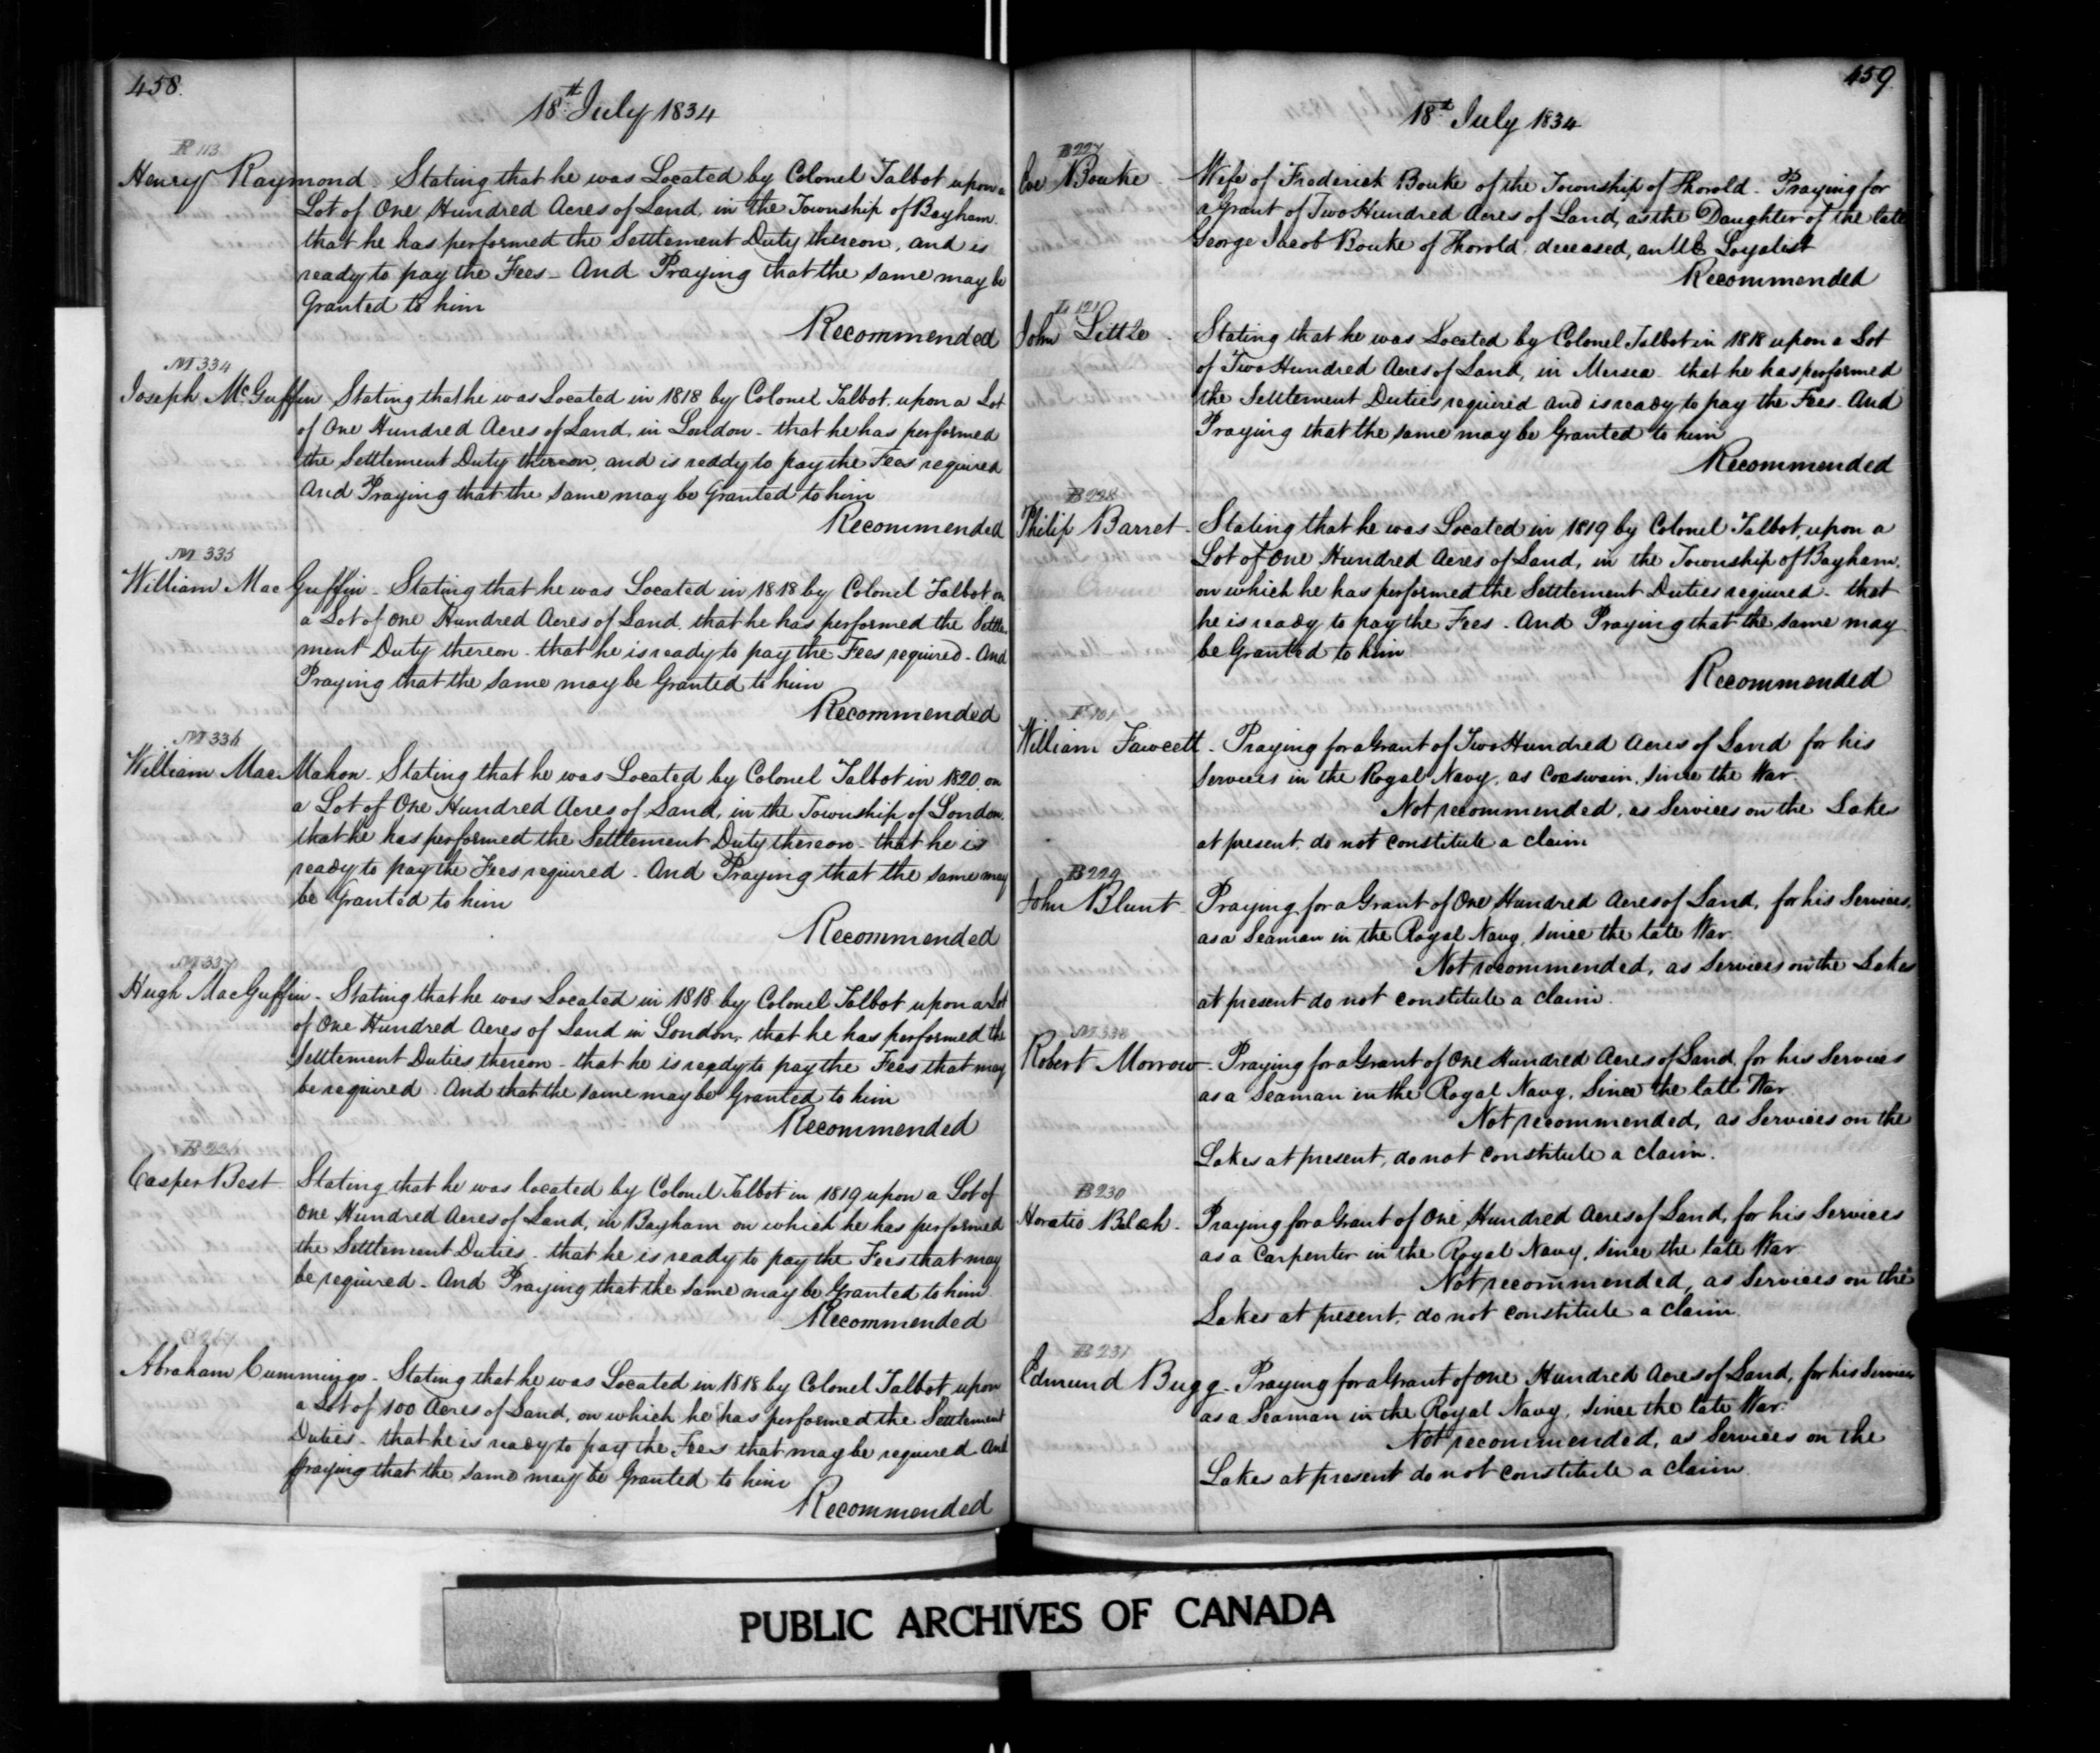 458.
18th July 1834
R 113
Henry Raymond - Stating that he was Located by Colonel Talbot upon a
Lot of One Hundred Acres of Land, in the Township of Bayham.
that he has performed the Settlement Duty thereon, and is
ready to pay the Fees - And Praying that the same may be
Granted to him
Recommended
M 334
Joseph McGuffin Stating that he was Located in 1818 by Colonel Talbot, upon a Lot
of One Hundred Acres of Land, in London - that he has performed
the Settlement Duty thereon, and is ready to pay the Fees required
And Praying that the same may be Granted to him
Recommended
M 335
William MacGuffin - Stating that he was Located in 1818 by Colonel Talbot on
a Lot of One Hundred Acres of Land. that he has performed the Settle
ment Duty thereon - that he is ready to pay the Fees required - And
Praying that the same may be Granted to him
Recommended
M 336
William MacMahon - Stating that he was Located by Colonel Talbot in 1820, on
a Lot of One Hundred Acres of Land, in the Township of London.
that he has performed the Settlement Duty thereon - that he is
ready to pay the Fees required - And Praying that the same may
be Granted to him
Recommended
M 337
Hugh MacGuffin - Stating that he was Located in 1818 by Colonel Talbot upon a Lot
of One Hundred Acres of Land in London, that he has performed the
Settlement Duties thereon - that he is ready to pay the Fees that may
be required. And that the same may be Granted to him
Recommended
B 226
Casper Best Stating that he was located by Colonel Talbot in 1819 upon a Lot of
One Hundred Acres of Land, in Bayham on which he has performed
the Settlement Duties - that he is ready to pay the Fees that may
be required - And Praying that the same may be Granted to him.
Recommended
Abraham Cummings - Stating that he was Located in 1818 by Colonel Talbot upon
a Lot of 100 Acres of Land, on which he has performed the Settlement
Duties - that he is ready to pay the Fees that may be required And
praying that the same may be Granted to him
Recommended
459
18th July 1834
B 227
Eve Bouke - Wife of Frederick Bouke of the Township of Thorold - Praying for
a Grant of Two Hundred Acres of Land, as the Daughter of the late
George Jacob Bouke of Thorold, deceased, an UE Loyalist
Recommended
L 121
John Little - Stating that he was Located by Colonel Talbot in 1818 upon a Lot
of Two Hundred Acres of Land, in Mersea - that he has performed
the Settlement Duties required and is ready to pay the Fees - And
Praying that the same may be Granted to him
Recommended
B 228
Philip Barret - Stating that he was Located in 1819 by Colonel Talbot, upon a
Lot of One Hundred Acres of Land, in the Township of Bayham,
on which he has performed the Settlement Duties required - that
he is ready to pay the Fees - And Praying that the same may
be Granted to him
Recommended
F 101
William Fawcett - Praying for a Grant of Two Hundred Acres of Land for his
Services in the Royal Navy, as Coxswain, since the War.
Not recommended, as Services on the Lakes
at present, do not constitute a claim
B 229
John Blunt - Praying for a Grant of One Hundred Acres of Land, for his Services,
as a Seaman in the Royal Navy, since the late War.
Not recommended, as Services on the Lakes
at present do not constitute a claim.
M 338
Robert Morrow - Praying for a Grant of One Hundred Acres of Land, for his Services
as a Seaman in the Royal Navy, Since the late War.
Not recommended, as Services on the
Lakes at present, do not constitute a claim.
B 230
Horatio Blah - Praying for a Grant of One Hundred Acres of Land, for his Services
as a Carpenter in the Royal Navy, since the late War
Not recommended, as Services on the
Lakes at present, do not constitute a claim.
B 231
Edmund Bugg - Praying for a Grant of one Hundred Acres of Land, for his Services
as a Seaman in the Royal Navy, since the late War.
Not recommended, as Services on the
Lakes at present do not constitute a claim.
PUBLIC ARCHIVES OF CANADA